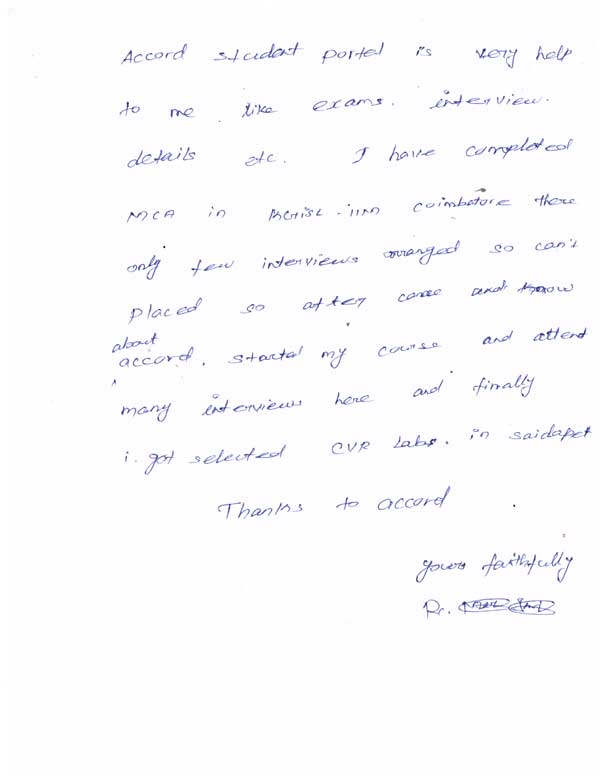 Accord student portal is very help
to me like exams. interview.
details etc. I have completed
MCA in coimbatore there
only few interviews arranged so can't
placed so after came and know
about
accord. started my course and attend
many interviews here and finally
i. got selected CVR Labs. in saidapet
Thanks to accord
yours faithfully